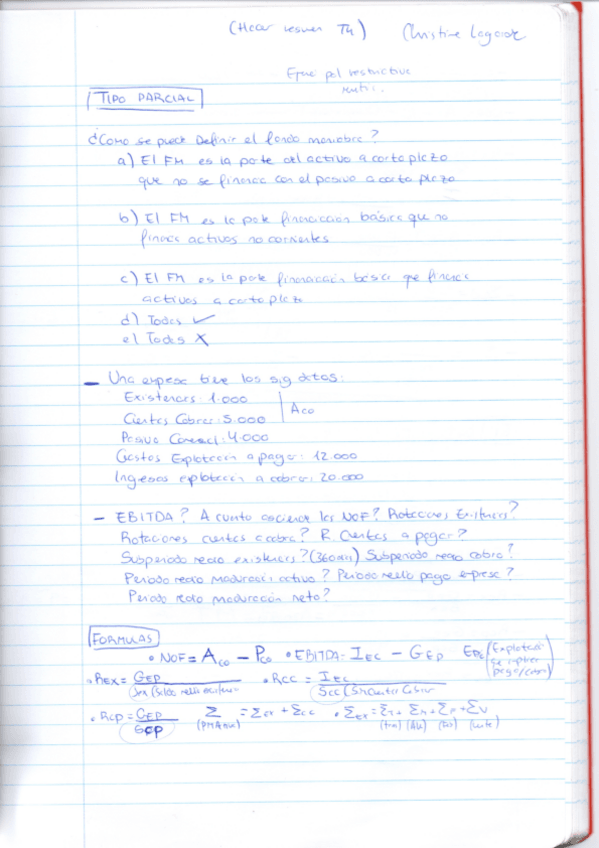 (Hacer resumen T4) Christine Lagarde
pol restrictiva
TIPO PARCIAL
¿Como se puede Definir el fondo maniobra?
a) El FM es la parte del activo a corto plazo
que no se financia con el pasivo a corto plazo
b) El FM es la parte financiacion básica que no
financia activos no corrientes
c) El FM es la parte financiación básica que financia
activos a corto plazo
d) Todas ✓
e) Todas X
- Una empresa tiene los sig datos:
Existencias: 1.000
Clientes Cobrar: 5.000 | Aco
Pasivo Comercial: 4.000
Gastos Explotación a pagar: 12.000
Ingresos explotación a cobrar: 20.000
- EBITDA? A cuanto asciende las NOF? Rotaciones Existencias?
Rotaciones cuentas a cobrar? R. Cuentas a pagar?
existencias? (360días) cobro?
Periodo medio maduración activo? Periodo medio pago empresa?
Periodo medio maduración neto?
FORMULAS
• NOF = Aco - Pco • EBITDA = IEC - GEP (Explotación
pagar/cobrar)
• REX = GEP • RCC = IEC
SCC
• RCP = GEP Σ = Σex + Σcc • Σex =
SCP